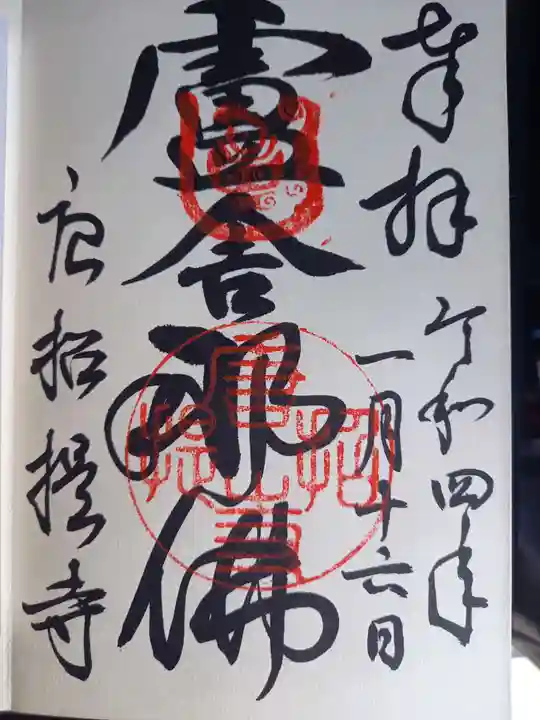 奉拝
令和四年
一月十六日
盧舎那佛
唐招提寺
唐招提寺